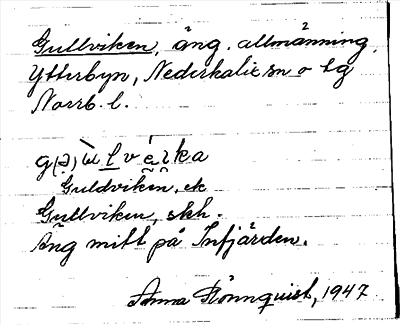 Gullviken, äng. allmänning,
Ytterbyn, Nederkalix sn o tg
Norrb. l.
Guldviken, ek
Gullviken, skh.
Äng mitt på Infjärden.
Anna Rönnquist, 1947